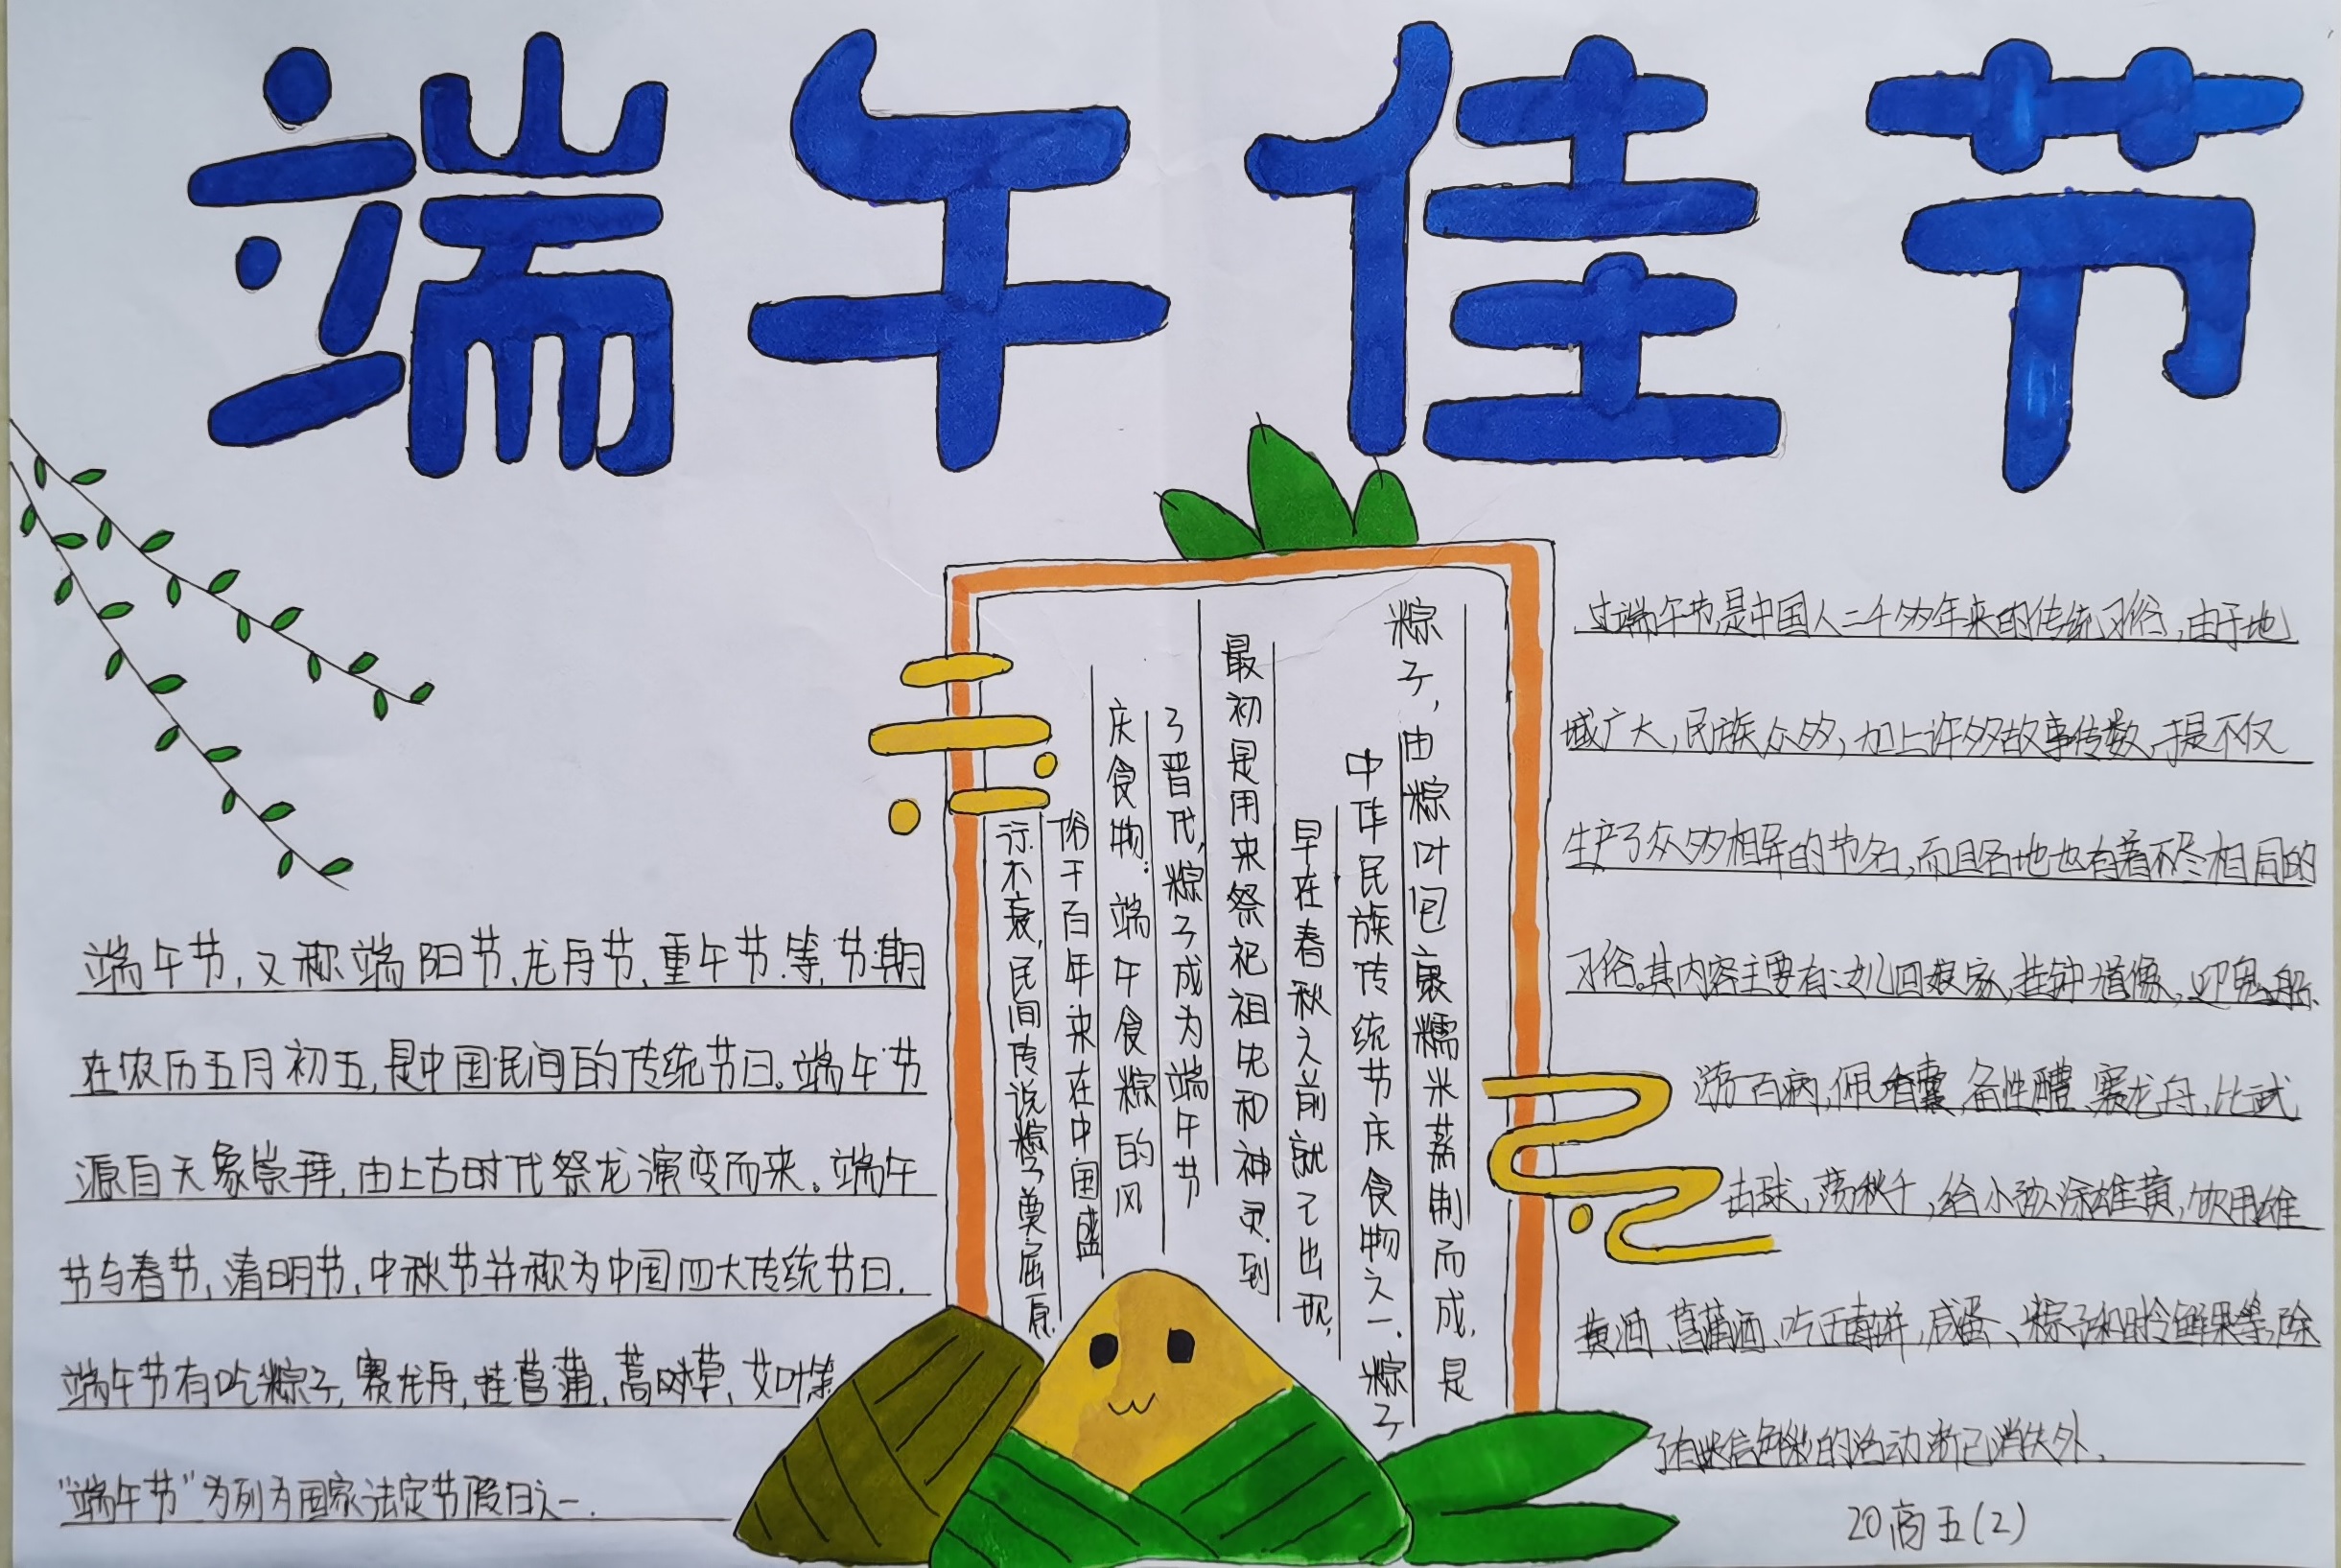 端午佳节
端午节,又称端阳节,龙舟节,重午节,等,节期
在农历五月初五,是中国民间的传统节日。端午节
源自天象崇拜,由上古时代祭龙演变而来。端午
节与春节,清明节,中秋节并称为中国四大传统节日.
端午节有吃粽子,赛龙舟,挂菖蒲,蒿草,艾叶
"端午节"为列为国家法定节假日之一.
粽子,由粽叶包裹糯米蒸制而成,是
中华民族传统节庆食物之一.粽子
早在春秋之前就已出现,
最初是用来祭祀祖先和神灵.到
了晋代,粽子成为端午节
庆食物.端午食粽的风
俗千百年来在中国盛
行不衰,民间传说粽子奠屈原.
过端午节,是中国人二千多年来的传统习俗,由于地
域广大,民族众多,加上许多故事传数,于是不仅
生产了众多相异的节名,而且各地也有着不尽相同的
习俗。其内容主要有:女儿回娘家,挂钟馗像,迎鬼船、
游百病,佩香囊,备牲醴、赛龙舟,比武
击球,荡秋千,给小孩涂雄黄,饮用雄
黄酒、菖蒲酒、吃五毒饼,咸蛋、粽子和时令鲜果等,除
了有迷信色彩的活动渐已消失外.
20商五(2)